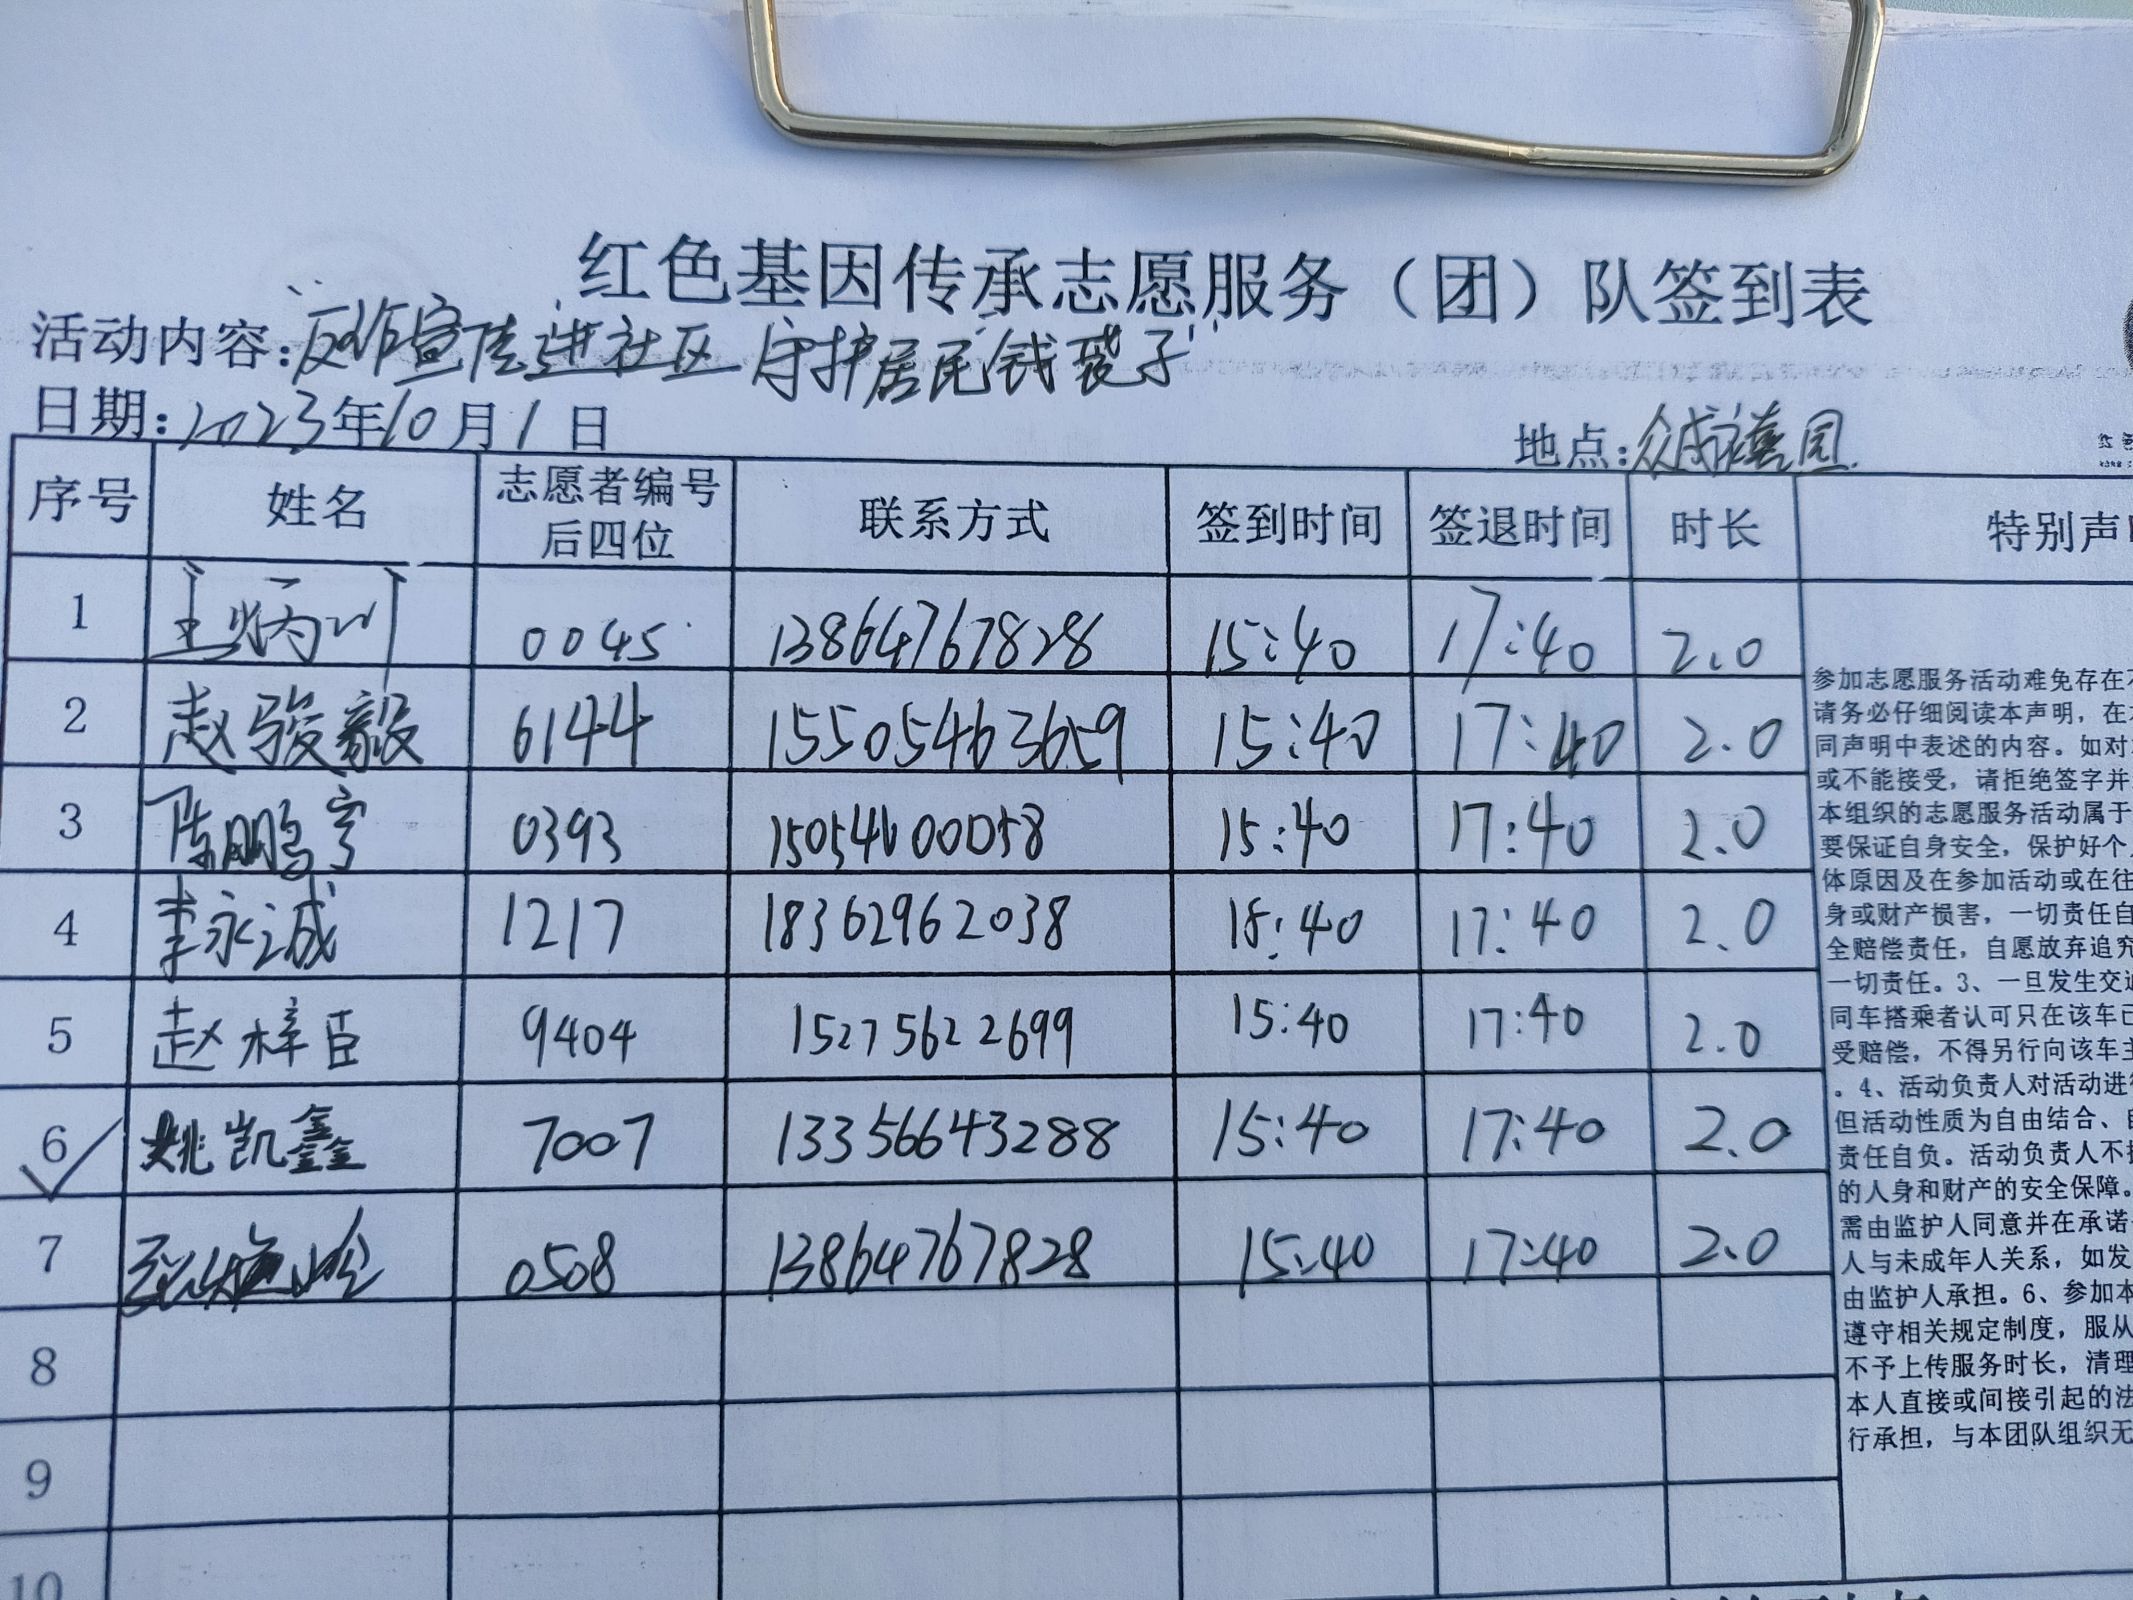 红色基因传承志愿服务（团）队签到表
活动内容：反诈宣传进社区 守护居民"钱袋子"
日期：2023年10月1日
地点：众成禧园
序号 姓名 志愿者编号后四位 联系方式 签到时间 签退时间 时长 特别声
1 王炳川 0045 13864767828 15:40 17:40 2.0
2 赵骏毅 6144 15505463659 15:40 17:40 2.0
3 陈鹏宇 0393 15054600058 15:40 17:40 2.0
4 李永诚 1217 18362962038 15:40 17:40 2.0
5 赵梓臣 9404 15275622699 15:40 17:40 2.0
6 姚凯鑫 7007 13356643288 15:40 17:40 2.0
7 0508 13864767828 15:40 17:40 2.0
8
9
10
参加志愿服务活动难免存在
请务必仔细阅读本声明，在
同声明中表述的内容。如对
或不能接受，请拒绝签字并
本组织的志愿服务活动属于
要保证自身安全，保护好个
体原因及在参加活动或在往
身或财产损害，一切责任自
全赔偿责任，自愿放弃追究
一切责任。3、一旦发生交通
同车搭乘者认可只在该车已
受赔偿，不得另行向该车主
。4、活动负责人对活动进行
但活动性质为自由结合、自
责任自负。活动负责人不
的人身和财产的安全保障。
需由监护人同意并在承诺
人与未成年人关系，如发
由监护人承担。6、参加本
遵守相关规定制度，服从
不予上传服务时长，清理
本人直接或间接引起的法
行承担，与本团队组织无